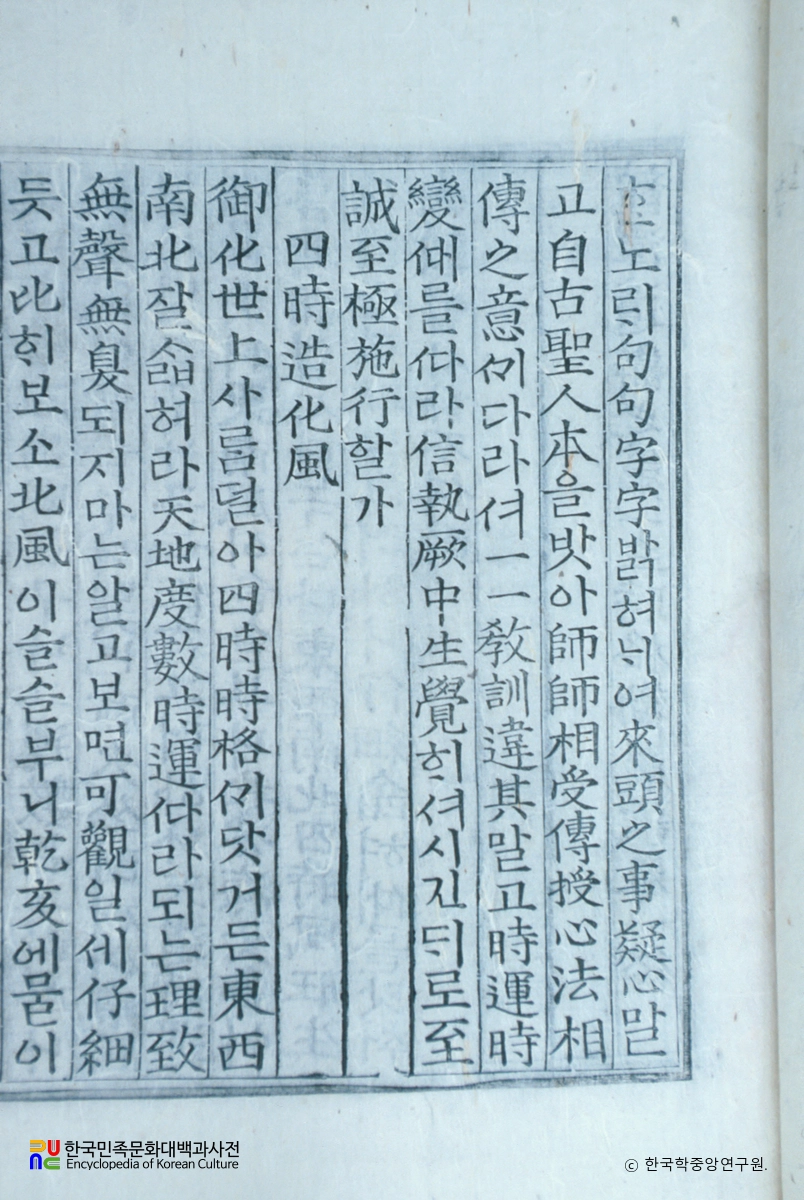 ᄒᆞᆫ노ᄅᆡ句句字字밝혀ᄂᆡ여來頭之事疑心말
고自古聖人本을밧아師師相受傳授心法相
傳之意ᄭᅵ다라셔一一敎訓違其말고時運時
變ᄯᅢ를ᄯᅡ라信執厥中生覺ᄒᆡ셔시진ᄃᆡ로至
誠至極施行할가
四時造化風
御化世上사ᄅᆞᆷ덜아四時時格ᄭᅵ닷거든東西
南北잘ᄉᆞᆲ혀라天地度數時運ᄯᅡ라되는理致
無聲無臭되지마는알고보면可觀일세仔細
듯고比ᄒᆡ보소北風이슬슬부니乾亥에물이
한국민족문화대백과사전
Encyclopedia of Korean Culture
ⓒ 한국학중앙연구원.